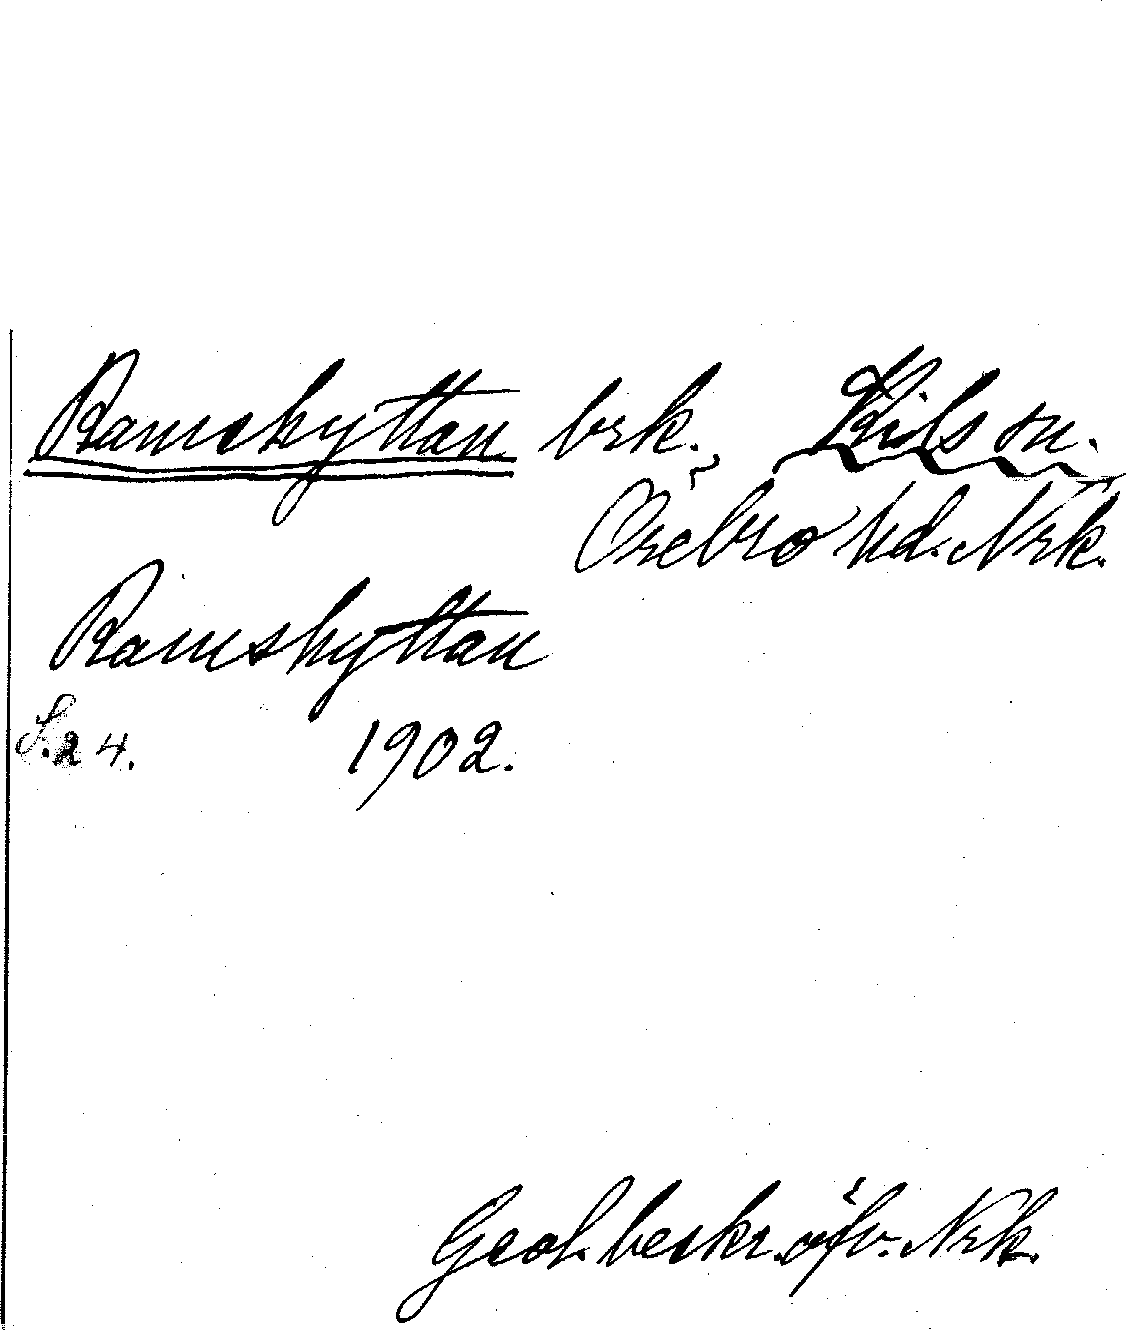 Ramshyttan brk., Kils sn.
Örebro hd. Nrk.
Ramshyttan
S. 24. 1902.
Geol. beskr. öfv. Nrk.